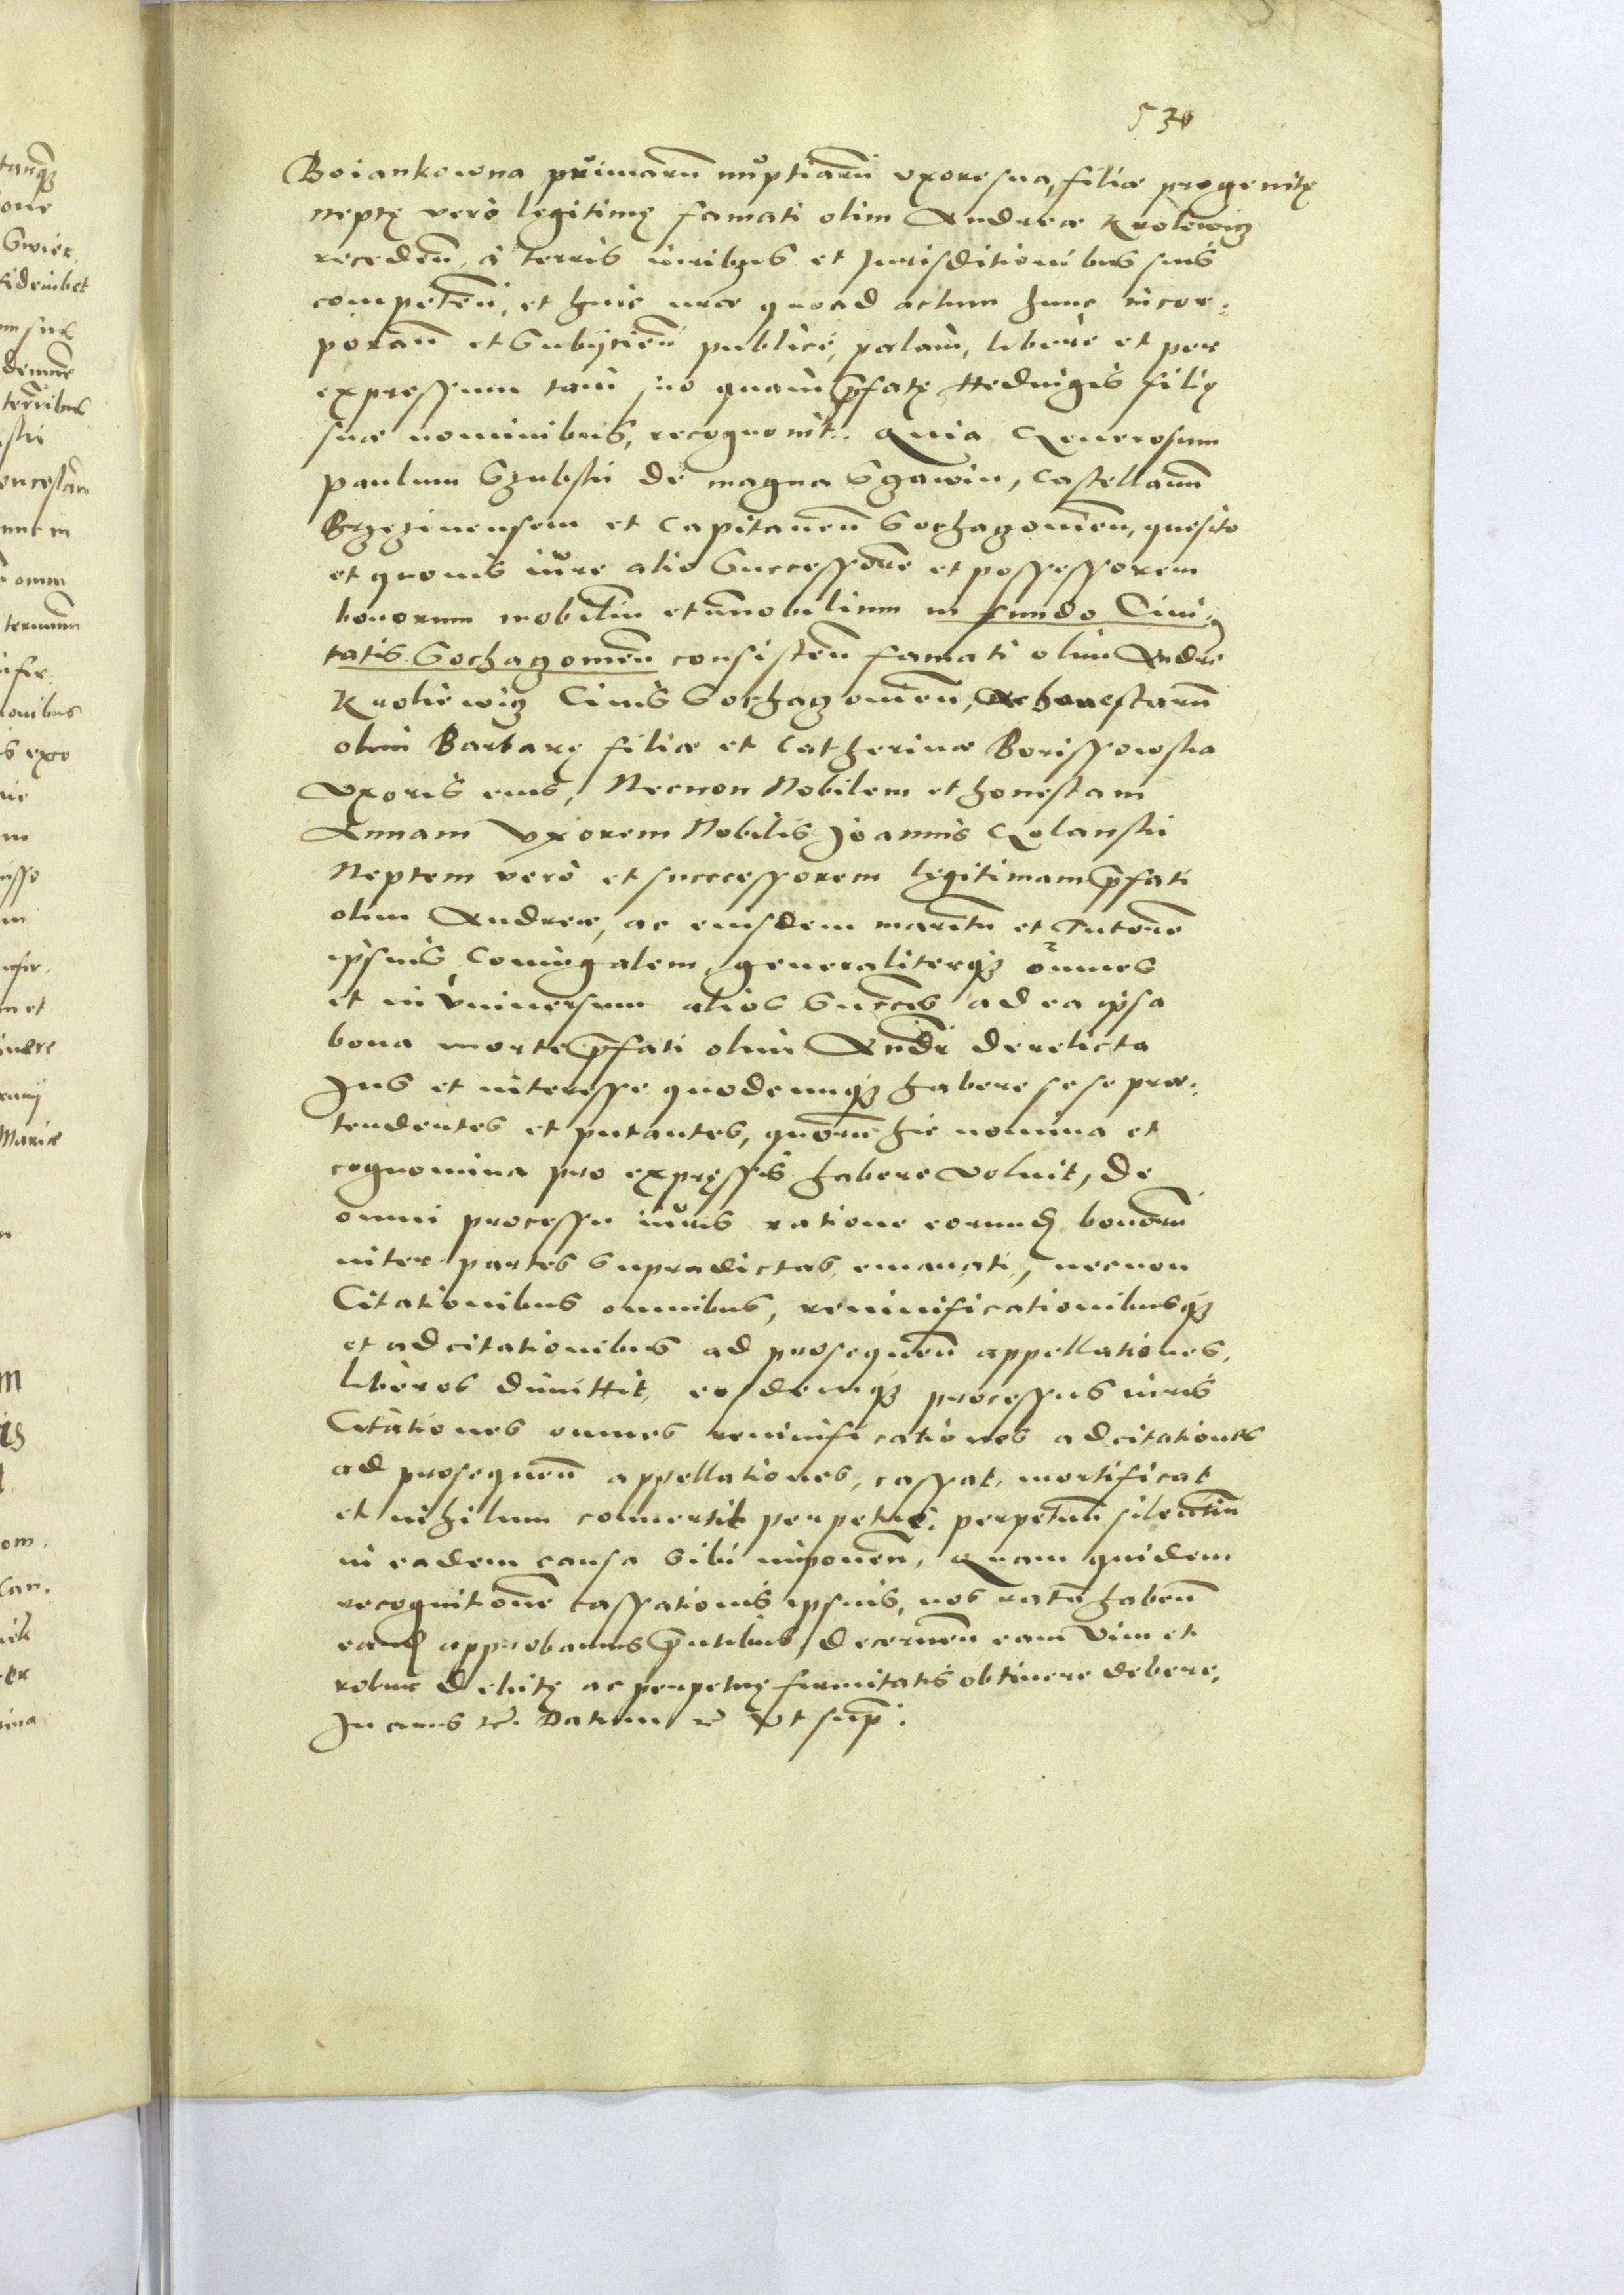 530
Boiankowna primarũ nuptiarũ vxore sua, filiæ progenitę
neptę verò legitimę famati olim Andreæ Krolewicz
recedeñ, à terris iuribus et Jurisditionibus suis
competeñ, et huic nræ quoad actum hunc incor:
porañ et Subijcieñ publicè, palam, liberè et per
expressum tam suo quàm p̃fatę Hedvigis filię
suæ nominibus, recognouit. Quia Generosum
Paulum Szubski de magna Sgawin, Castellanũ
Brzezinensem et Capitaneũ Sochazouieñ, quesito
et quouis iure alio Successorẽ et possessorem
bonorum mobiliũ et im̃obilium in fundo Ciui,
tatis Sochazouieñ consisteñ famati olim Andreę
Kroliewicz Ciuis Sochazouieñ, Ac honestarũ
olim Barbarę filiæ et Catherinæ Borissowska
Vxoris eius, Necnon Nobilem et honestam
Annam Vxorem Nobilis Joannis Golanski
Neptem verò et successorem legitimam p̃fati
olim Andreæ, ac eiusdem maritũ et Tutorẽ
ipsius Coniugalem, generaliterq3 omnes
et in Vniuersum alios Succes̃ ad ea ipsa
bona morte p̃fati olim Andr̃ derelicta
Jus et interesse quodcunq3 habere se se præ:
tendentes et putantes, quorũ hic nomina et
cognomina pro expressis habere voluit, de
omni processu iuris ratione eorund̃ bonorũ
inter partes Supradictas emanati, necnon
Citationibus omnibus, reminificationibusq3
et adcitationibus ad prosequeñ appellationes,
liberos dimittit, eosdemq3 processus iuris
Citationes omnes reminificationes adcitationes
ad prosequeñ appellationes, cassat, mortificat
et in hilum conuertit perpetuè, perpetuũ silentiũ
in eadem causa Sibi imponeñ, Quam quidem
recognitionẽ cassationis ipsius, nos ratã habeñ
eand̃ approbamus p̃ntibus, decerneñ eam Vim et
robur debitę ac perpetuę firmitatis obtinere debere,
In cuius rẽ. Datum rẽ Vt sup̃.